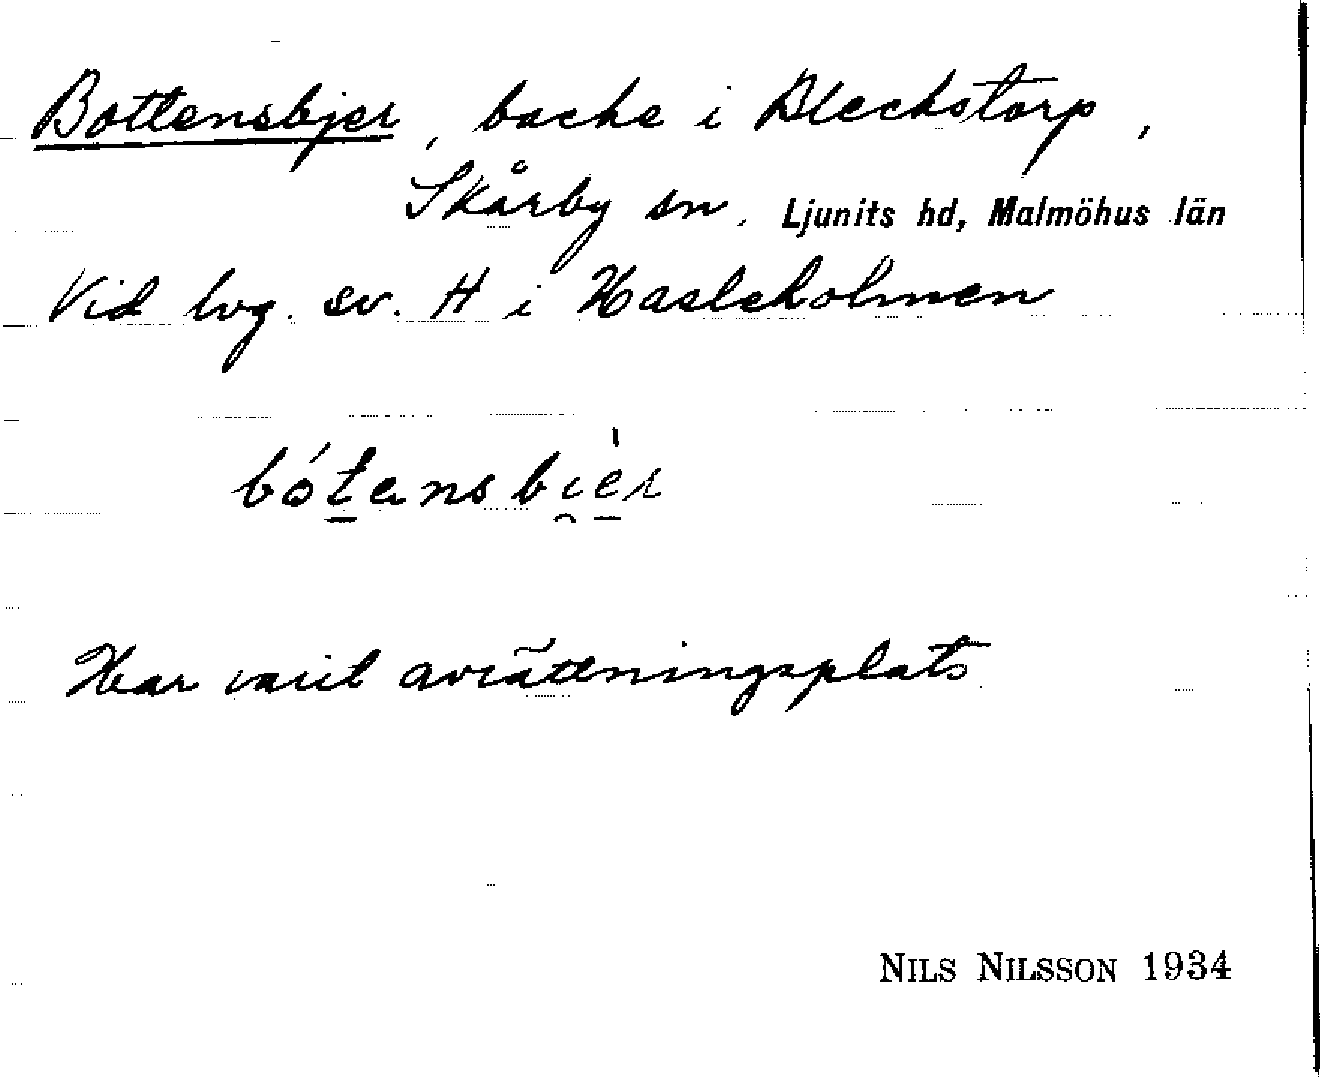 Bottensbjer, backe i Bleckstorp,
Skårby sn. Ljunits hd, Malmöhus län
Vid lvg. sv. H i Hasleholmen
bót̲ensbi̯è̲r
Har varit avrättningsplats
NILS NILSSON 1934